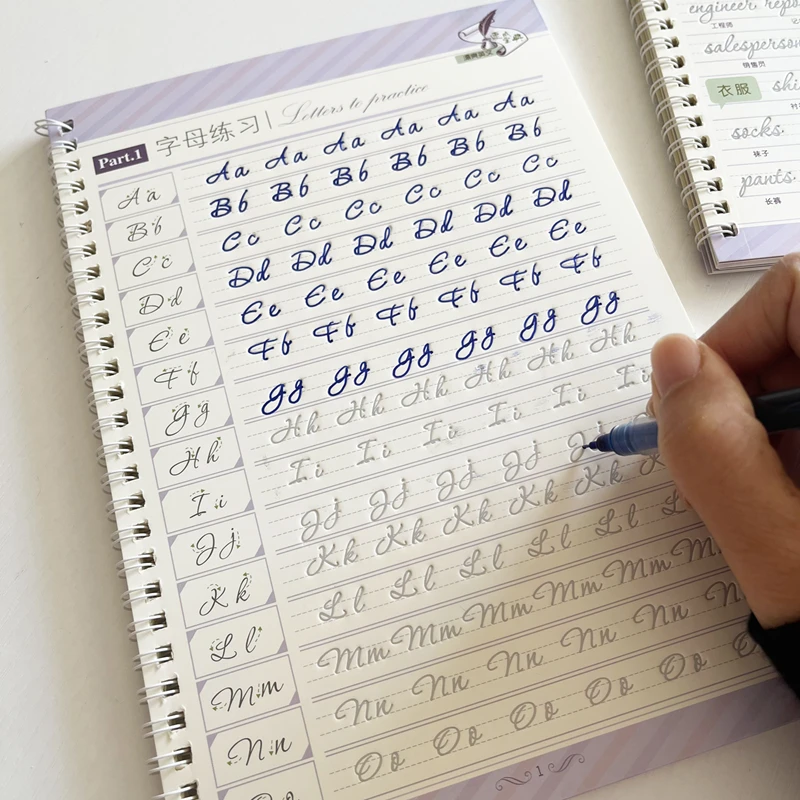 Part.1 字母练习 Letters to practice
Aa Aa Aa Aa Aa Aa Aa
Bb Bb Bb Bb Bb Bb Bb
Cc Cc Cc Cc Cc Cc Cc
Dd Dd Dd Dd Dd Dd Dd
Ee Ee Ee Ee Ee Ee Ee
Ff Ff Ff Ff Ff Ff Ff
Gg Gg Gg Gg Gg Gg Gg
Hh Hh Hh Hh Hh Hh Hh
Ii Ii Ii Ii Ii Ii Ii
Jj Jj Jj Jj Jj Jj
Kk Kk Kk Kk Kk Kk K
Ll Ll Ll Ll Ll Ll L
Mm Mm Mm Mm Mm Mm M
Nn Nn Nn Nn Nn Nn N
Oo Oo Oo Oo Oo Oo O
1
engineer. repo
工程师
salesperson
销售员
衣服 shi
socks.
袜子
pants.
长裤